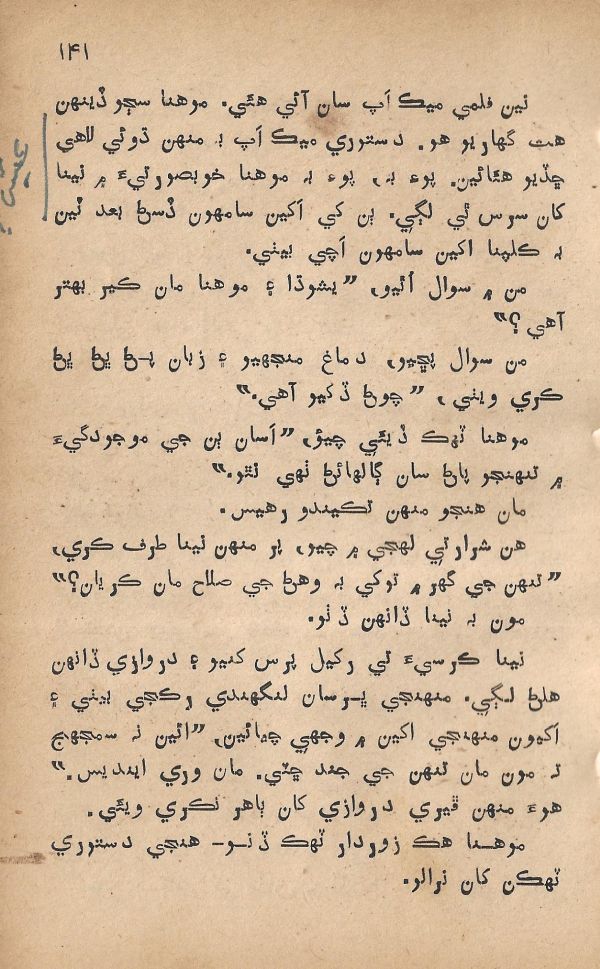 ۱۴۱
نين فلمي ميڪ اَپ سان آئي هئي. موهنا سڄو ڏينهن
هت گهاريو هو. دستوري ميڪ اَپ بہ منهن ڌوئي لاهي
ڇڏيو هئائين. پوءِ بہ، پوءِ بہ موهنا خوبصورتيءَ ۾ نينا
کان سرس ٿي لڳي. ٻن کي اکين سامهون ڏسڻ بعد ٽين
بہ ڪلپنا اکين سامهون اَچي بيٺي.
من ۾ سوال اُٿيو، ”يشوڌا ۽ موهنا مان ڪير بهتر
آهي؟“
من سوال پڇيو، دماغ منجهيو ۽ زبان پڻ ڀڻ ڀڻ
ڪري ويٺي، ”چوڻ ڏکيو آهي.“
موهنا ٽهڪ ڏيئي چيؤ، ”اَسان ٻن جي موجودگيءَ
۾ تنهنجو پاڻ سان ڳالهائڻ ٺهي نٿو.“
مان هنجو منهن تڪيندو رهيس.
هن شرارتي لهجي ۾ چيو، پر منهن نينا طرف ڪري،
”تنهن جي گهر ۾ توکي بہ وهڻ جي صلاح مان ڪريان؟“
مون بہ نينا ڏانهن ڏٺو.
نينا ڪرسيءَ تي رکيل پرس کنيو ۽ دروازي ڏانهن
هلڻ لڳي. منهنجي ڀرسان لنگهندي رڪجي بيٺي ۽
اکيون منهنجي اکين ۾ وجهي چيائين، ”ائين نہ سمجهج
تہ مون مان تنهن جي جند ڇٽي. مان وري اينديس.“
هوءَ منهن ڦيري دروازي کان ٻاهر نڪري ويئي.
موهنا هڪ زوردار ٽهڪ ڏنو- هنجي دستوري
ٽهڪن کان نرالو.